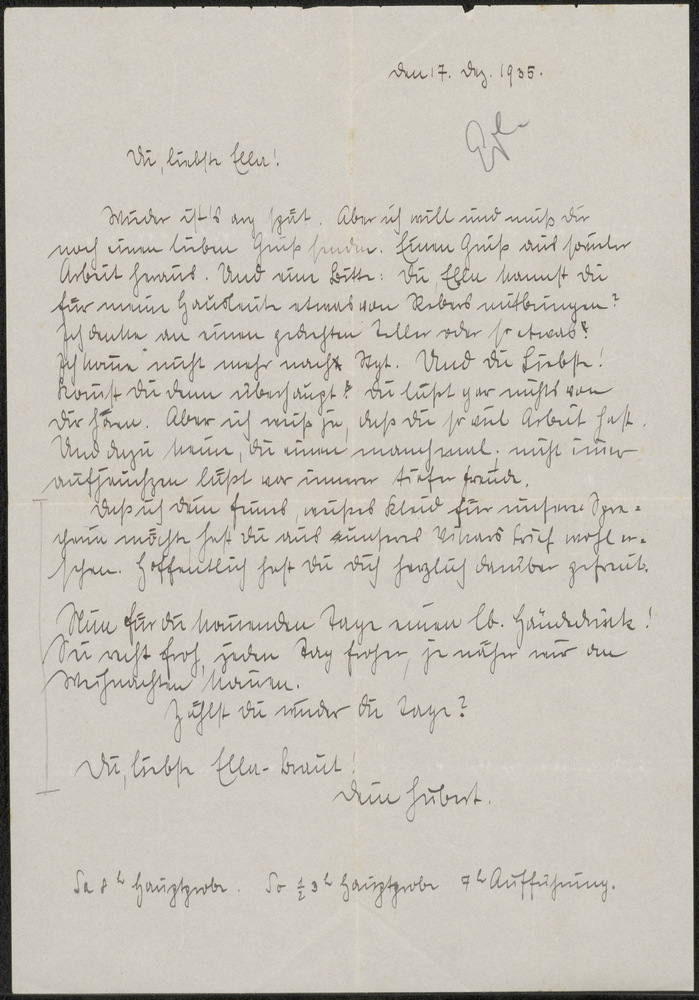 Den 17. Dez. 1935.
Du, liebste Ella!
Wieder ist's arg spät. Aber ich will und muß Dir
noch einen lieben Gruß senden. Einen Gruß aus
Arbeit heraus. Und eine Bitte: Du, Ella kannst Du
für meine Hausleute etwas von Rebers mitbringen?
Ich denke an einen Teller oder so etwas?
Ich komme nicht mehr nach Stgt. Und Du Liebste!
Kommst Du denn überhaupt? Du läßt gar nichts von
Dir hören. Aber ich weiß ja, daß Du so viel Arbeit hast.
Und dazu keine, die einen manchmal, nicht immer
aufjauchzen läßt vor innerer tiefer Freude.
Daß ich Dein weißes Kleid für unsere
möchte hast Du aus Brief wohl er-
sehen. Hoffentlich hast Du Dich herzlich darüber gefreut.
Nun für die kommenden Tage einen lb. Händedruck!
Sei recht froh, jeden Tag froher, je näher wir an
Weihnachten kommen.
Zählst Du wieder die Tage?
Du, liebste Ella-Braut!
Dein Hubert.
Sa 8h Hauptprobe. So ½ 3h Hauptprobe 7h Aufführung.